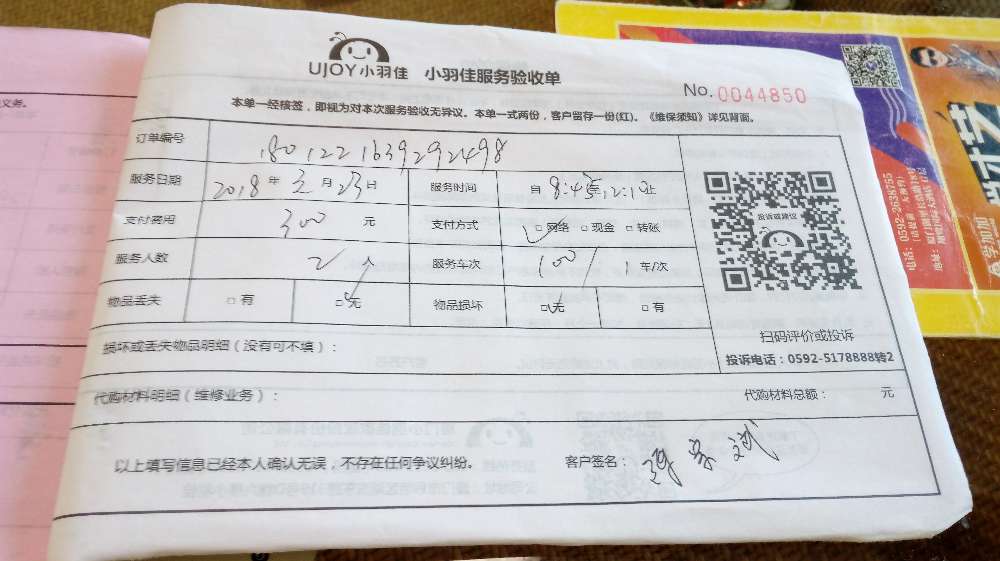 UJOY小羽佳 小羽佳服务验收单
No. 0044850
本单一经核签，即视为对本次服务验收无异议。本单一式两份，客户留存一份(红)。《维保须知》详见背面。
订单编号 1801221639292498
服务日期 2018 年 元 月 23 日 服务时间 自 8:45至12:1 止
支付费用 300 元 支付方式 □网络 □现金 □转账
服务人数 2 人 服务车次 100/1车/次
物品丢失 □有 □无 物品损坏 □无 □有
投诉或建议
扫码评价或投诉
投诉电话：0592-5178888转2
损坏或丢失物品明细（没有可不填）：
代购材料明细（维修业务）： 代购材料总额： 元
以上填写信息已经本人确认无误，不存在任何争议纠纷。 客户签名：
义务。
电话：0592-2638755